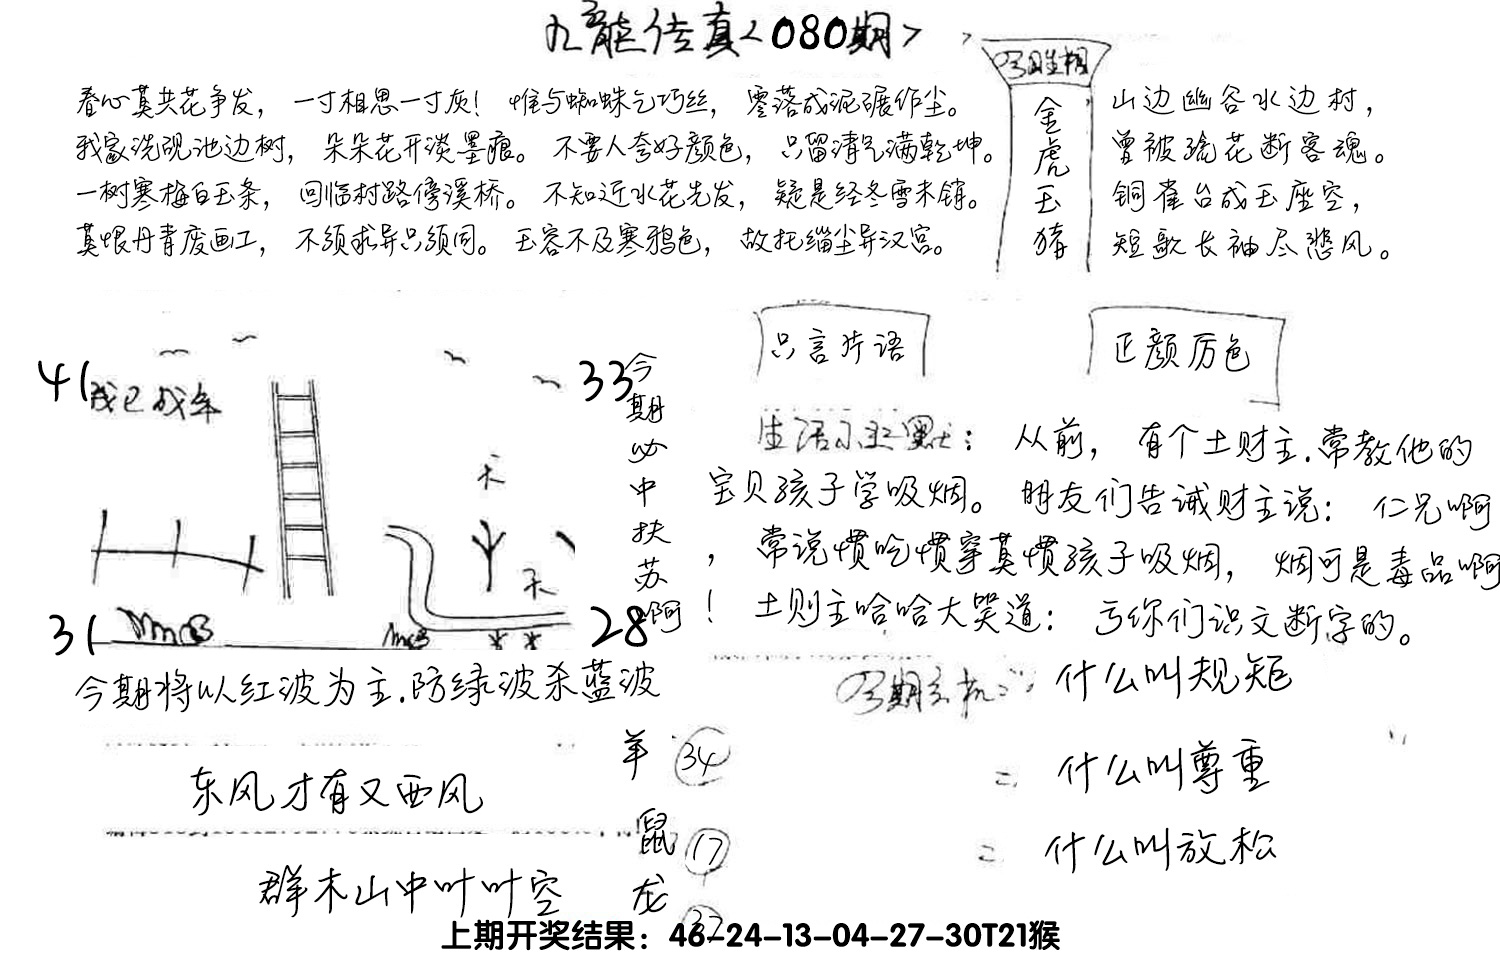 九龙传真<080期>
春心莫共花争发，一寸相思一寸灰！惟与蜘蛛乞巧丝，零落成泥碾作尘。
我家洗砚池边树，朵朵花开淡墨痕。不要人夸好颜色，只留清气满乾坤。
一树寒梅白玉条，回临村路傍溪桥。不知近水花先发，疑是经冬雪未销。
莫恨丹青废画工，不须求异只须同。玉容不及寒鸦色，故托缁尘异汉宫。
金虎玉猪
山边幽谷水边村，
曾被疏花断客魂。
铜雀台成玉座空，
短歌长袖尽悲风。
41
我已成年
33
31
28
天
天
今期必中扶苏啊
只言片语
正颜厉色
生活小幽默：从前，有个土财主.常教他的
宝贝孩子学吸烟。朋友们告诫财主说：仁兄啊
，常说惯吃惯穿莫惯孩子吸烟，烟可是毒品啊
！土财主哈哈大笑道：亏你们识文断字的。
今期将以红波为主.防绿波杀蓝波
东风才有又西风
群木山中叶叶空
羊 34
鼠 17
龙 32
今期玄机：什么叫规矩
什么叫尊重
什么叫放松
上期开奖结果：46-24-13-04-27-30T21猴